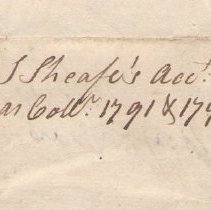 J Sheafe's Acct.
as Collr. 1791 & 179